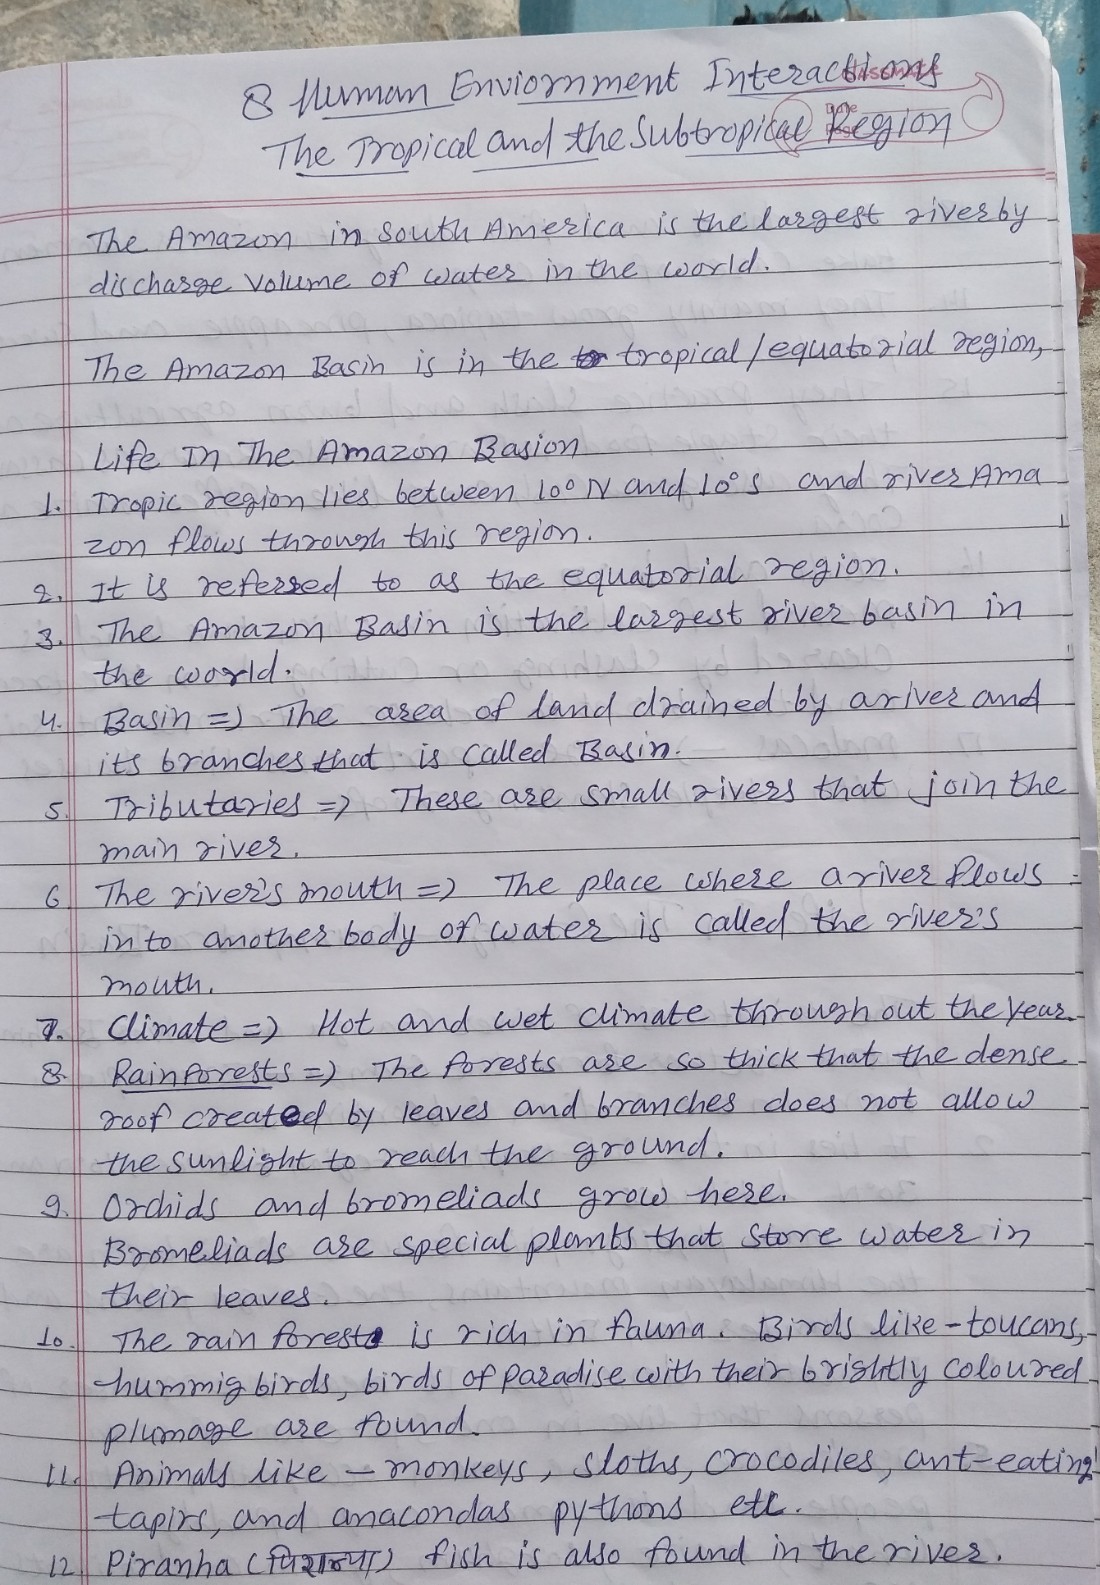 8 Human Enviornment Interactions
The Tropical and the Subtropical Region
CLASSMATE
Date
Page
The Amazon in South America is the largest river by
discharge volume of water in the world.
The Amazon Basin is in the tropical/equatorial region,
Life In The Amazon Basion
1. Tropic region lies between 10° N and 10° S and river Ama
zon flows through this region.
2. It is referred to as the equatorial region.
3. The Amazon Basin is the largest river basin in
the world.
4. Basin => The area of land drained by a river and
its branches that is called Basin.
5. Tributaries => These are small rivers that join the
main river.
6 The river's mouth => The place where a river flows
into another body of water is called the river's
mouth.
7. Climate => Hot and wet climate through out the year.
8. Rainforests => The forests are so thick that the dense
roof created by leaves and branches does not allow
the sunlight to reach the ground.
9. Orchids and bromeliads grow here.
Bromeliads are special plants that store water in
their leaves.
10. The rain forest is rich in fauna. Birds like - toucans,
hummig birds, birds of paradise with their brightly coloured
plumage are found.
11. Animals like - monkeys, sloths, crocodiles, ant-eating
tapirs, and anacondas pythons etc.
12 Piranha () fish is also found in the river.